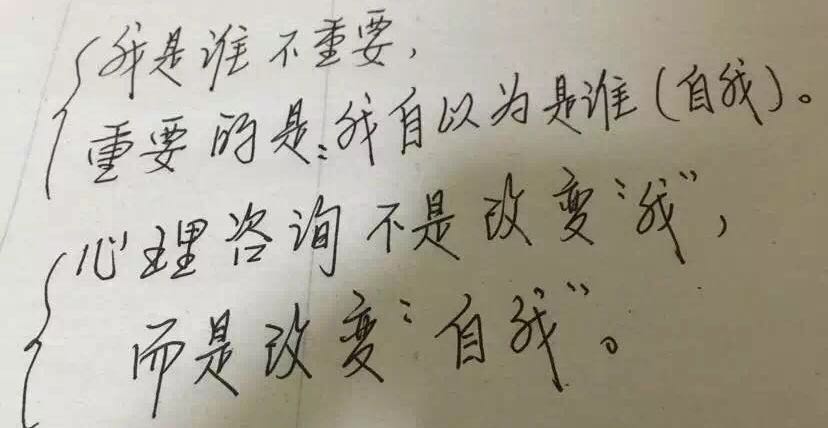 我是谁不重要，
重要的是：我自以为是谁（自我）。
心理咨询不是改变“我”，
而是改变“自我”。